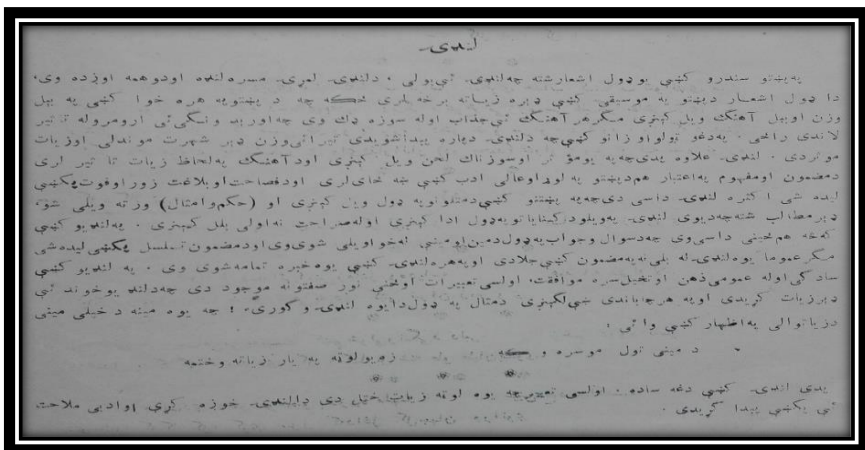 لنډۍ
په پښتو سندرو کښې یو ډول اشعار شته چه لنډۍ ئې بولي ٠ د لنډۍ لمړۍ مسره لنډه او دوهمه اوږده وي٠
دا ډول اشعار د پښتو په موسیقۍ کښې ډېره زیاته برخه لري ځکه چه د پښتو په هره خوا کښې په بېل
وزن او بېل آهنګ ویل کېږي مګر هر آهنګ ئې جذاب او له سوزه ډک وي چه اورېدونکي ئې ارومرو له تاثیر
لاندي راځي ٠ په دغو ټولو اوزانو کښې چه د لنډۍ دپاره پیدا شویدي وزن ډېر شهرت موندلی او زیات
مؤثر دی ٠ لنډۍ علاوه پدې چه په یو مؤثر او سوزناک لحن ویل کېږي او د آهنګ په لحاظ زیات تاثیر لري
د مضمون او مفهوم په اعتبار هم د پښتو په لوړ او عالي ادب کښې ښه ځای لري او د فصاحت او بلاغت زور او قوت پکښې
لیده شي اکثره لنډۍ داسې دي چه په پښتنو کښې د متلو په ډول ویل کېږي او (حکم و امثال) ورته ویلی شو٠
ډېر مطالب شته چه د یوې لنډۍ په ویلو د کنایاتو په ډول ادا کېږي او له صراحت نه اولی بلل کېږي ٠ په لنډیو کښې
که څه هم ځینې داسې وي چه د سوال و جواب په ډول د مین او مینې له خوا ویلي شوي وي او د مضمون تسلسل پکښې لیده شي
مګر عموماً یوه لنډۍ له بلې نه په مضمون کښې جلا ده او په هره لنډۍ کښې یوه خبره تمامه شوې وي ٠ په لنډیو کښې
سادګي او له عمومي ذهن او تخیل سره موافقت٠ اولسي تعبیرات او ځنې نور صفتونه موجود دي چه د لنډیو خوند ئې
ډېر زیات کړیدی او په هر چا باندي ښې لګېږي د مثال په ډول دا یوه لنډۍ وګورئ٠ : چه یوه مینه د خپلې مینې
د زیاتوالي په اظهار کښې وائي :
د مینې تول مو سره وکه    زه یو لوټه په یار زیاته وختمه
پدې لنډۍ کښې دغه ساده ٠ اولسي تعبیر چه یوه لوټه زیات ختل دي دا لنډۍ خوږه کړې او ادبي ملاحت
ئې پکښې پیدا کړیدی ٠